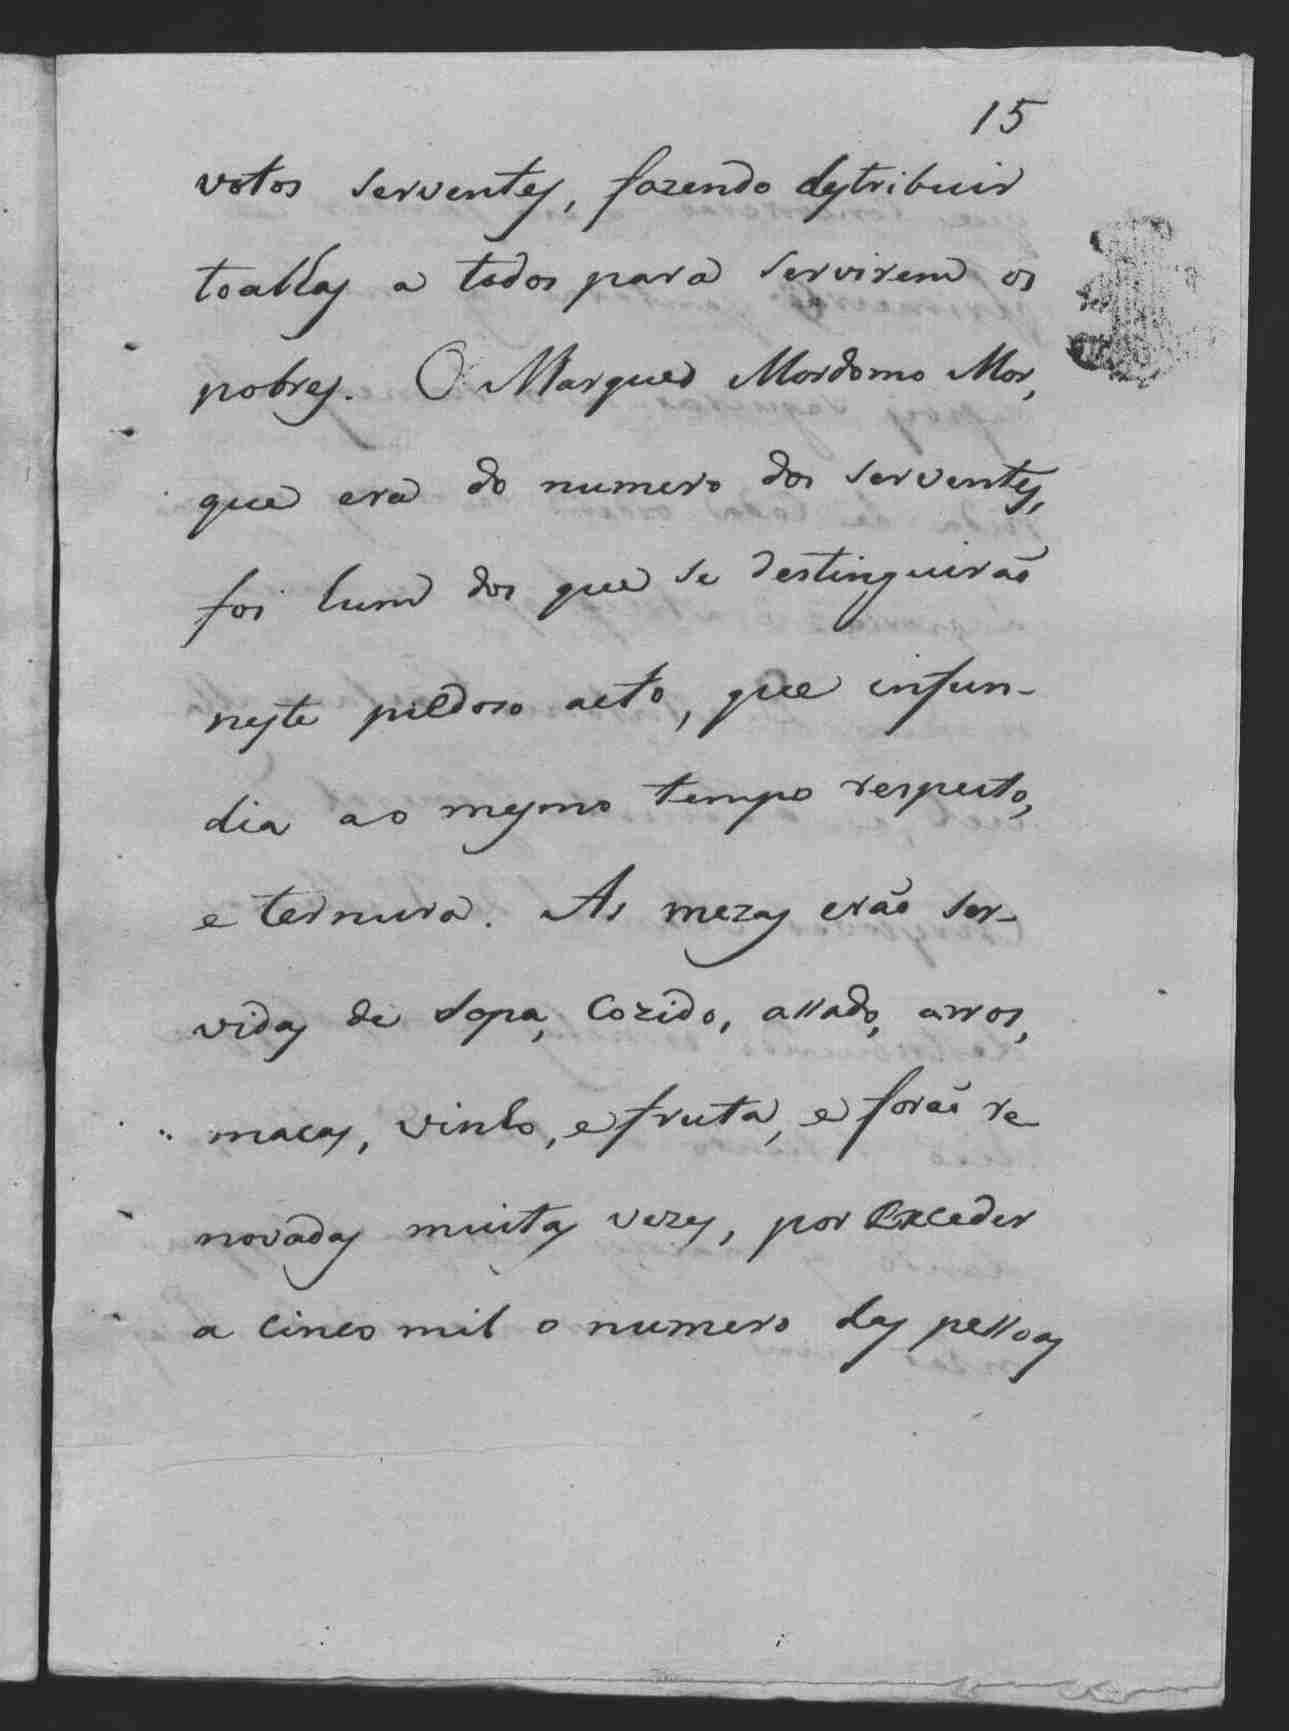 15
votos serventes, fazendo destribuir
toalhas a todos para servirem os
pobres. O Marques Mordomo Mor,
que era do numero dos serventes,
foi hum dos que se destinguirão
neste piedoso acto, que infun-
dia ao mesmo tempo respeito,
e ternura. As mezas erão ser-
vidas de sopa, cozido, assado, arros,
macas, vinho, e fruta, e forão re
novadas muitas vezes, por exceder
a cinco mil o numero das pessoas